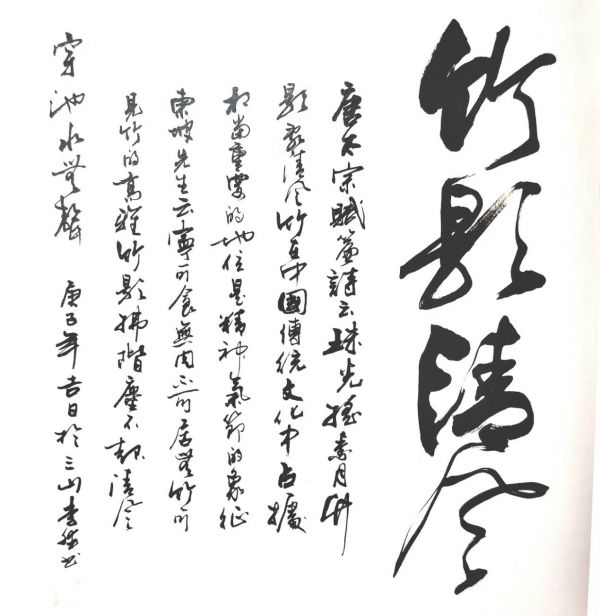 竹影清风
唐太宗賦簾詩云珠光搖素月竹
影亂清风竹在中國傳統文化中占據
相當重要的地位是精神氣節的象征
東坡先生云寧可食無肉不可居無竹可
見竹的高雅竹影拂階塵不起清风
穿池水無聲 庚子年吉日於三山李书